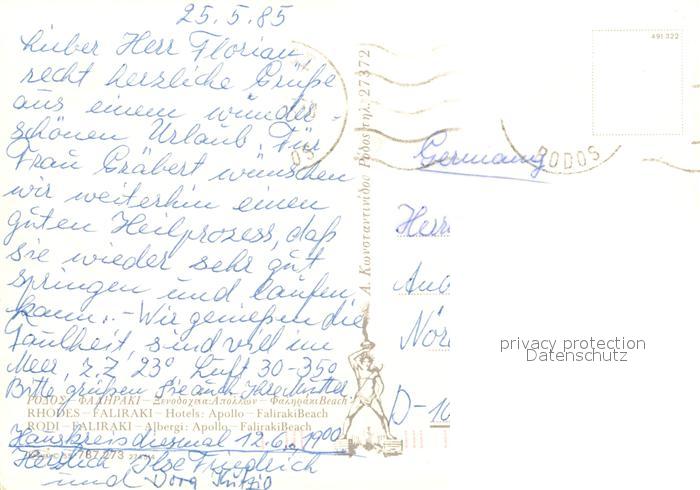 25.5.85
Lieber Herr Florian,
recht herzliche Grüße
aus einem wunder-
schönen Urlaub. Für
Frau Gräbert wünschen
wir weiterhin einen
guten Heilprozess, daß
sie wieder sehr gut
springen und laufen
kann. - Wir genießen die
Faulheit, sind viel im
Meer, z.Z. 23° Luft 30-35°
Bitte grüßen Sie auch Ihre Mutter.
ΡΟΔΟΣ - ΦΑΛΗΡΑΚΙ - Ξενοδοχεῖα: Ἀπόλλων - Φαληράκι Beach
RHODES - FALIRAKI - Hotels: Apollo - FalirakiBeach
RODI - FALIRAKI - Albergi: Apollo - FalirakiBeach
Hauskreis diesmal 12.6., 19.00
787/273
Herzlich Ilse Friedrich
und Dora
Α. Κωνσταντινίδου Ρόδος τηλ. 27372
491 322
RODOS
Germany
Herr
Nör
D-10
privacy protection
Datenschutz